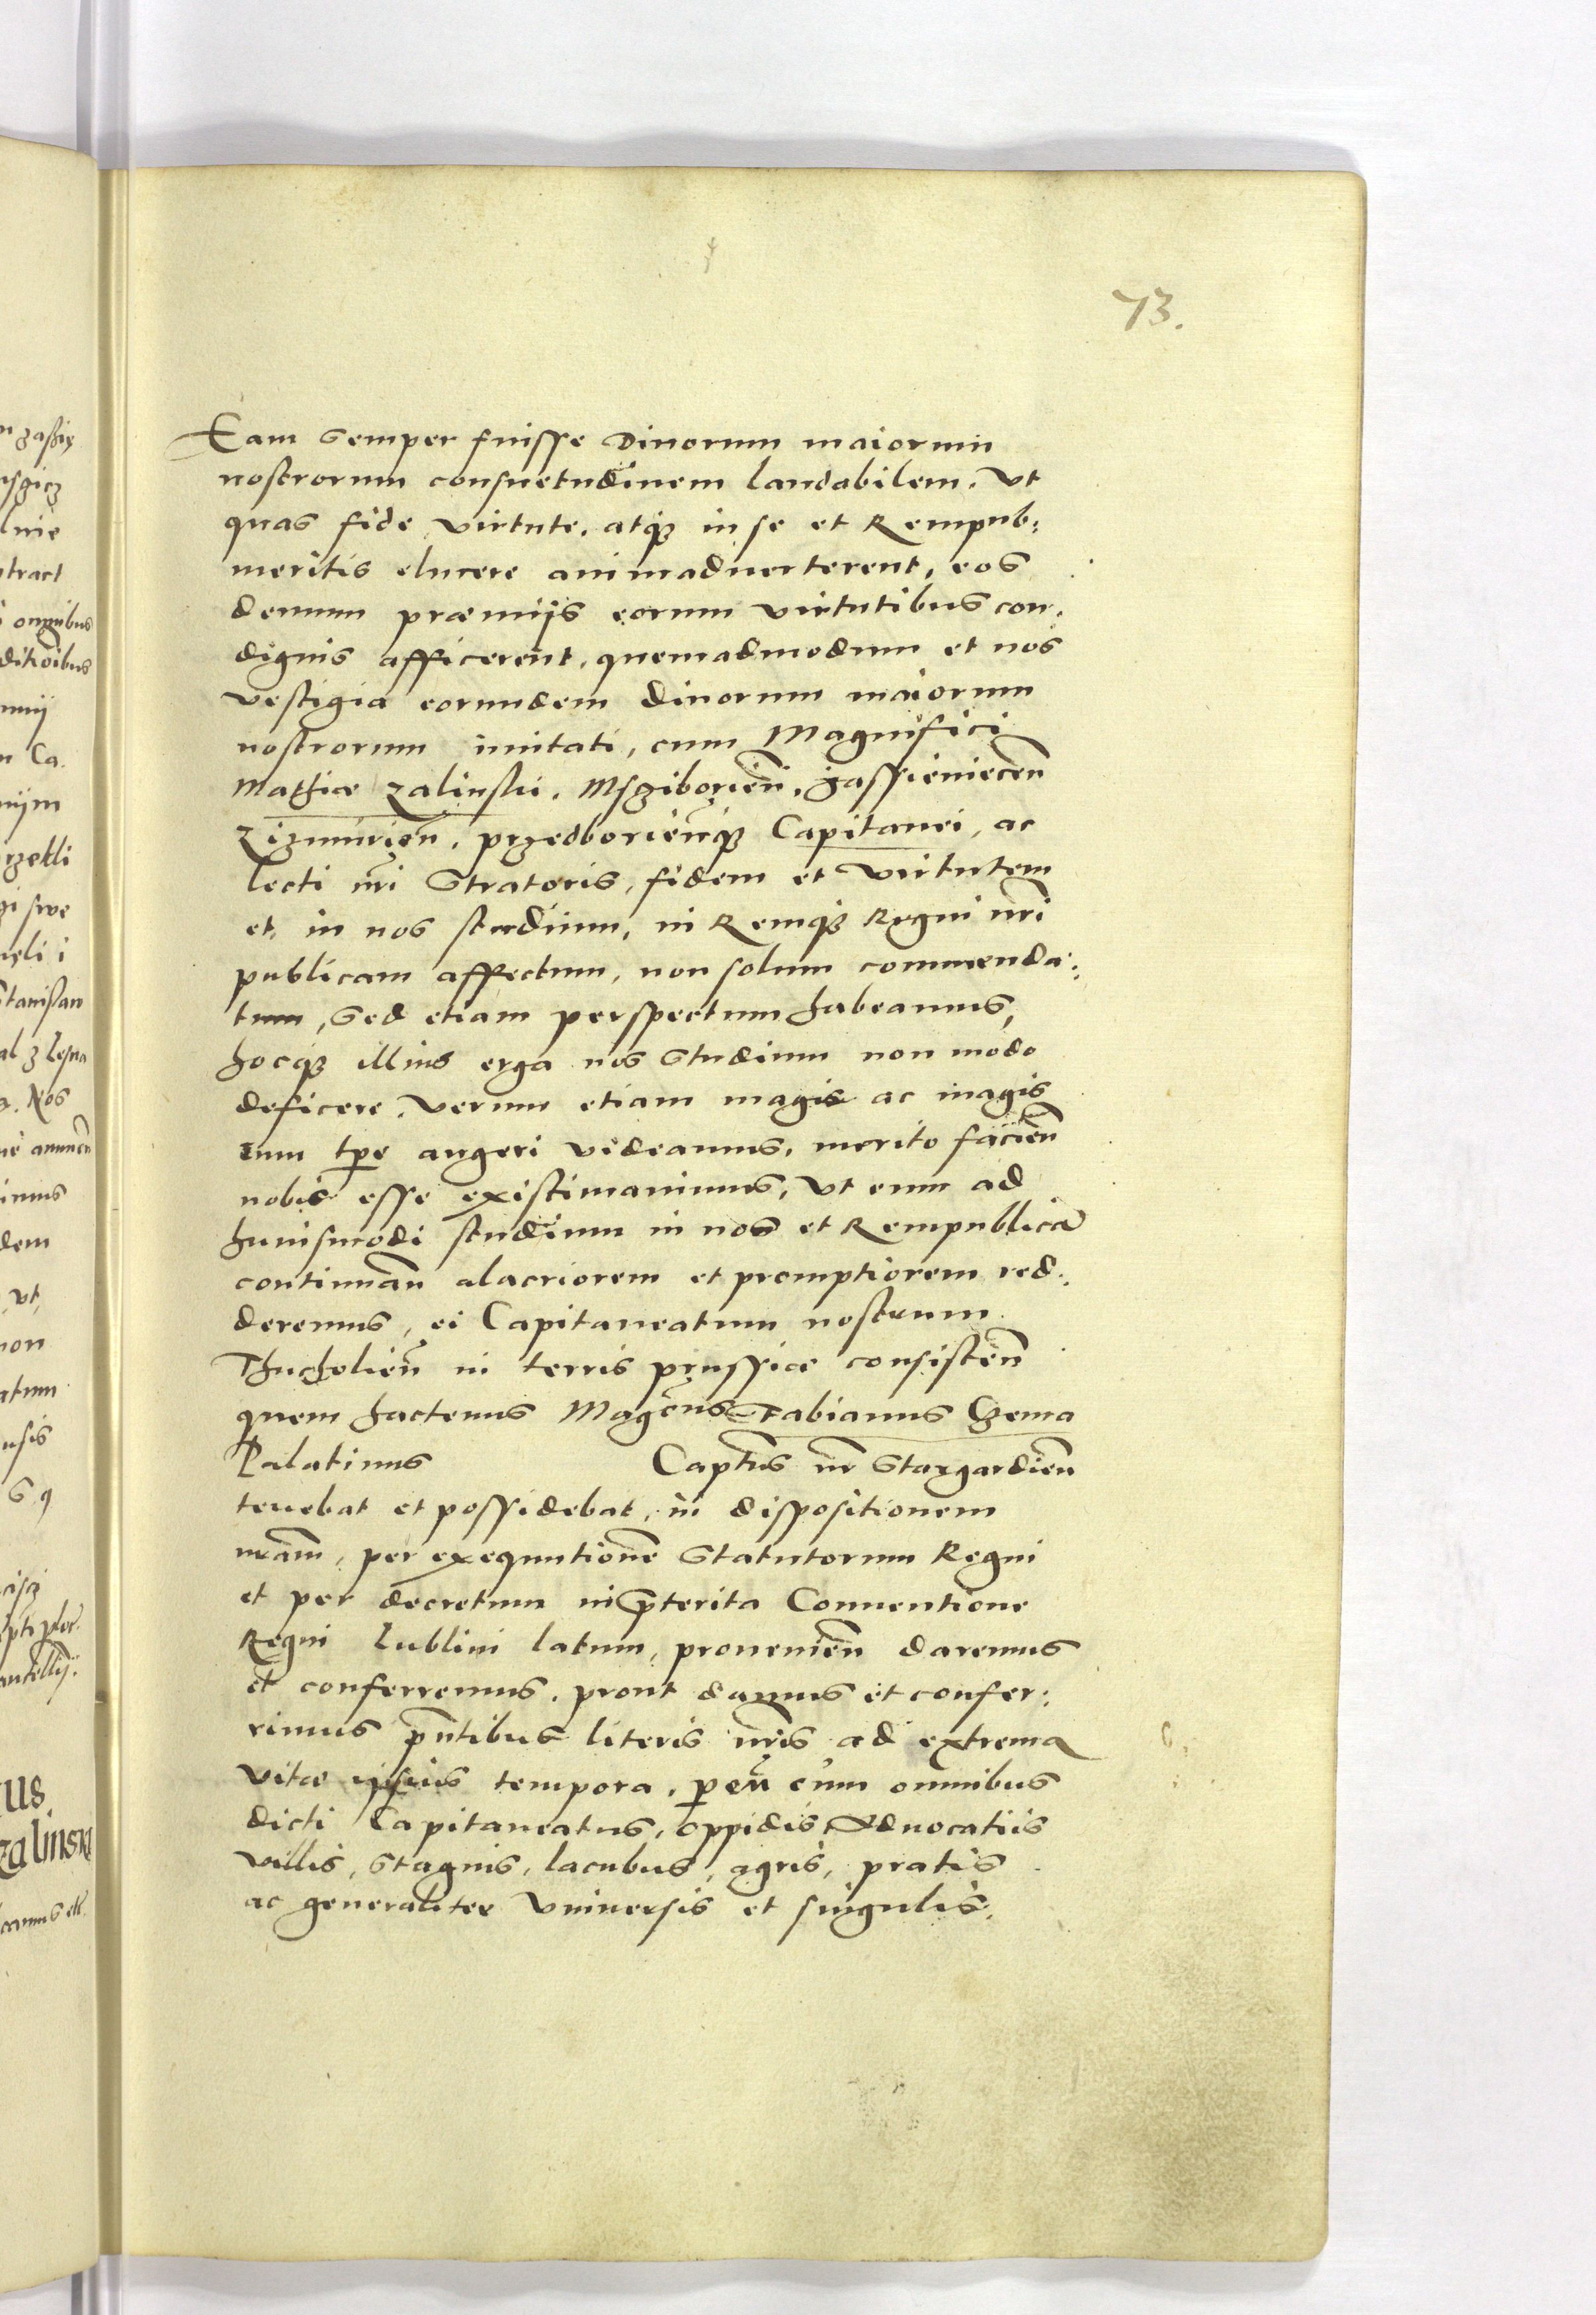 73.
Eam semper fuisse Divorum maiorum
nostrorum consuetudinem laudabilem, ut
quas fide virtute, atq3 in se et Rempub:
meritis elucere animadverterent, eos
demum præmijs eorum virtutibus con,
dignis afficerent, quemadmodum et nos
vestigia eorundem divorum maiorum
nostrorum imitati, cum Magnifici
Mathiæ Zalinski, Msziborien̄, Jassieniecen̄
Zizmirien̄, przedborien̄q3 Capitanei, ac
lecti nr̄i Stratoris, fidem et virtutem
et in nos studium, in Remq3 Regni nr̄i
publicam affectum, non solum commenda:
tum, sed etiam perspectum habeamus,
hocq3 illius erga nos studium non modo
deficere, verum etiam magis ac magis
cum tp̄e augeri videamus, merito facien̄
nobis esse existimavimus, ut eum ad
huiusmodi studium in nos et Rempublicā
continuan̄ alacriorem et promptiorem red:
deremus, ei Capitaneatum nostrum
Thucholien̄ in terris prussiæ consisten̄
quem hactenus Magcus Fabianus Czema
Palatinus Captn̄s nr̄ Stargardien̄
tenebat et possidebat, in dispositionem
nr̄am, per exequutionē Statutorum Regni
et per decretum in p̄terita Conventione
Regni Lublini latum, provenien̄ daremus
et conferremus, prout damus et confer:
rimus pn̄tibus literis nr̄is ad extrema
vitæ ipsius tempora, cum omnibus
dicti Capitaneatus, oppidis, Advocatiis
villis, stagnis, lacubus, agris, pratis
ac generaliter universis et singulis,
n zaßię
lnie
tract
omnibus
ditioibus
n Ca.
rzekli
Nos
imus
dem
ut
non
atum
nsis
us.
zalinski